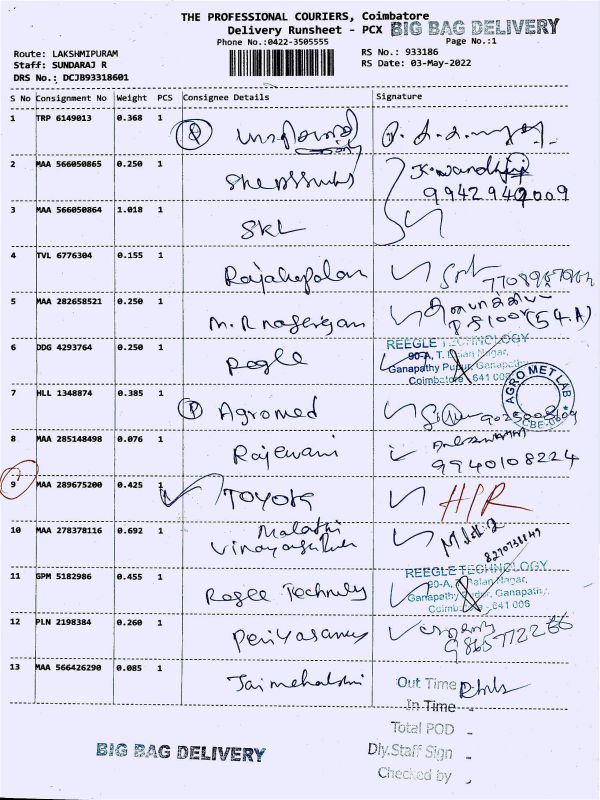 THE PROFESSIONAL COURIERS, Coimbatore
Delivery Runsheet - PCX BIG BAG DELIVERY
Phone No.:0422-3505555 Page No.:1
Route: LAKSHMIPURAM RS No.: 933186
Staff: SUNDARAJ R RS Date: 03-May-2022
DRS No.: DCJB93318601
S No Consignment No Weight PCS Consignee Details Signature
1 TRP 6149013 0.368 1
2 MAA 566050865 0.250 1
9942942009
3 MAA 566050864 1.018 1 SKL
4 TVL 6776304 0.155 1 Rajahopalan
5 MAA 282658521 0.250 1 M.R nagarajan
6 DDG 4293764 0.250 1 Regle
REEGLE TECHNOLOGY
90-A, T. Balan Nagar,
Ganapathy Pudur, Ganapathy,
Coimbatore - 641 006
7 HLL 1348874 0.385 1 Agromed
AGRO MET LAB
8 MAA 285148498 0.076 1 Rajewani
9940108224
9 MAA 289675200 0.425 1 TOYOTA HPR
10 MAA 278378116 0.692 1 Malathi
11 GPM 5182986 0.455 1 Regle
REEGLE TECHNOLOGY
90-A, T. Balan Nagar,
Ganapathy Pudur, Ganapathy,
Coimbatore - 641 006
12 PLN 2198384 0.260 1 Periyasamy
13 MAA 566426290 0.085 1 Jaimahalshmi
Out Time
In Time -
Total POD -
Dly.Staff Sign -
Checked by -
BIG BAG DELIVERY